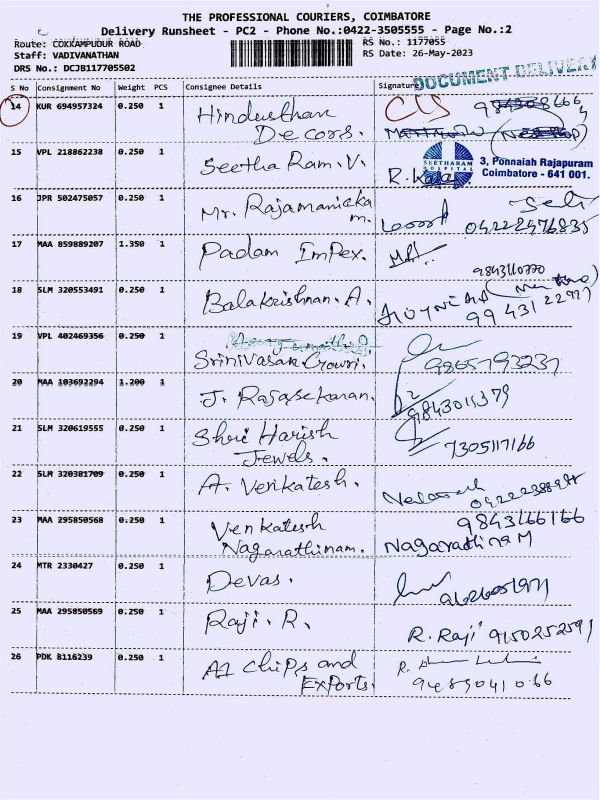 THE PROFESSIONAL COURIERS, COIMBATORE
Delivery Runsheet - PC2 - Phone No.:0422-3505555 - Page No.:2
Route: COKKAMPUDUR ROAD RS No.: 1177055
Staff: VADIVANATHAN RS Date: 26-May-2023
DRS No.: DCJB117705502
DOCUMENT DELIVERY
S No Consignment No Weight PCS Consignee Details Signature
14 KUR 694957324 0.250 1 Hindusthan
Decors.
15 VPL 218862238 0.250 1 Seetha Ram. V.
SEETHARAM HOSPITAL
3, Ponnaiah Rajapuram
Coimbatore - 641 001.
16 JPR 502475057 0.250 1 Mr. Rajamanicka
m. 04222476835
17 MAA 859889207 1.350 1 Padam Impex.
9843110770
18 SLM 320553491 0.250 1 Balakrishnan. A.
99431 22977
19 VPL 402469356 0.250 1
Srinivasan Gowri. 9865793237
20 MAA 103692294 1.200 1 J. Rajasekaran. 9843011379
21 SLM 320619555 0.250 1 Shri Harish
Jewels. 7305117166
22 SLM 320381709 0.250 1 A. Venkatesh.
23 MAA 295850568 0.250 1 Venkatesh 9843166166
Nagarathinam. Nagarathinam
24 MTR 2330427 0.250 1 Devas.
25 MAA 295850569 0.250 1 Raji. R. R. Raji 9150252591
26 PDK 8116239 0.250 1 A1 Chips and
Exports. 9489041066